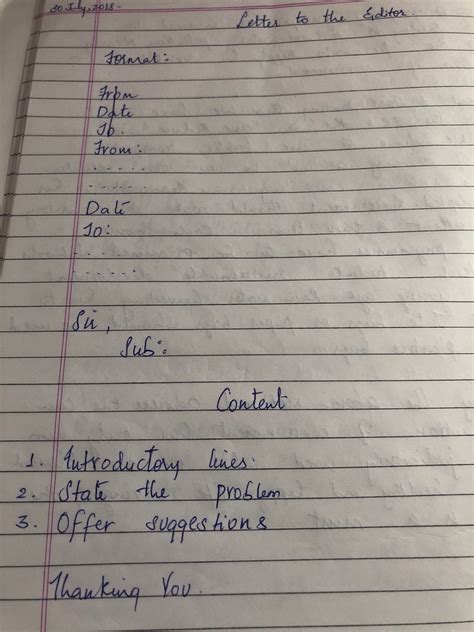 30 July, 2018.
Letter to the Editor.
Format:
From
Date
To.
From:
. . . . .
. . . . .
Date
To:
. . . .
. . . . .
Sir,
Sub:
Content
1. Introductory lines.
2. State the problem
3. Offer suggestions
Thanking You.